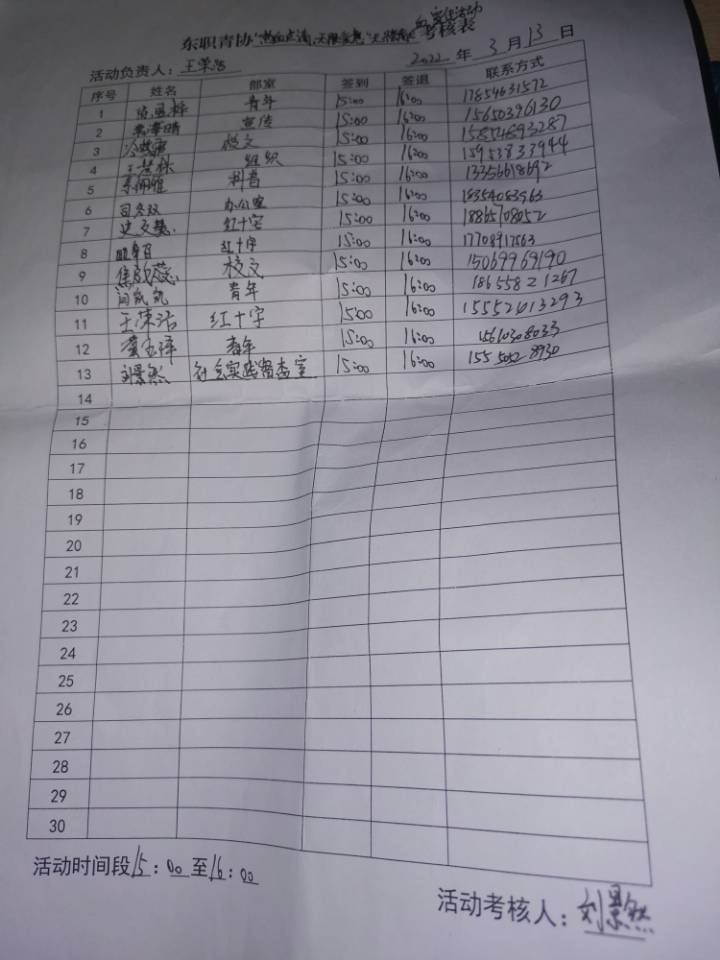 东职青协"热血 无限 " 血宣传活动考核表
活动负责人：王荣浩 2022 年 3 月 13 日
序号 姓名 部室 签到 签退 联系方式
1 青年 15:00 16:00 17854631572
2 宣传 15:00 16:00 15650396130
3 校文 15:00 16:00 15854693287
4 组织 15:00 16:00 15953833944
5 科普 15:00 16:00 13356618692
6 办公室 15:00 16:00 18354083963
7 史文慧 红十字 15:00 16:00 18865708052
8 红十字 15:00 16:00
9 焦欣蕊 校文 15:00 16:00 15069969190
10 青年 15:00 16:00 18655821267
11 王荣浩 红十字 15:00 16:00 15552613293
12 青年 15:00 16:00 15610308033
13 刘景然 社会实践督查室 15:00 16:00 15550528930
14
15
16
17
18
19
20
21
22
23
24
25
26
27
28
29
30
活动时间段15：00至16：00
活动考核人：刘景然